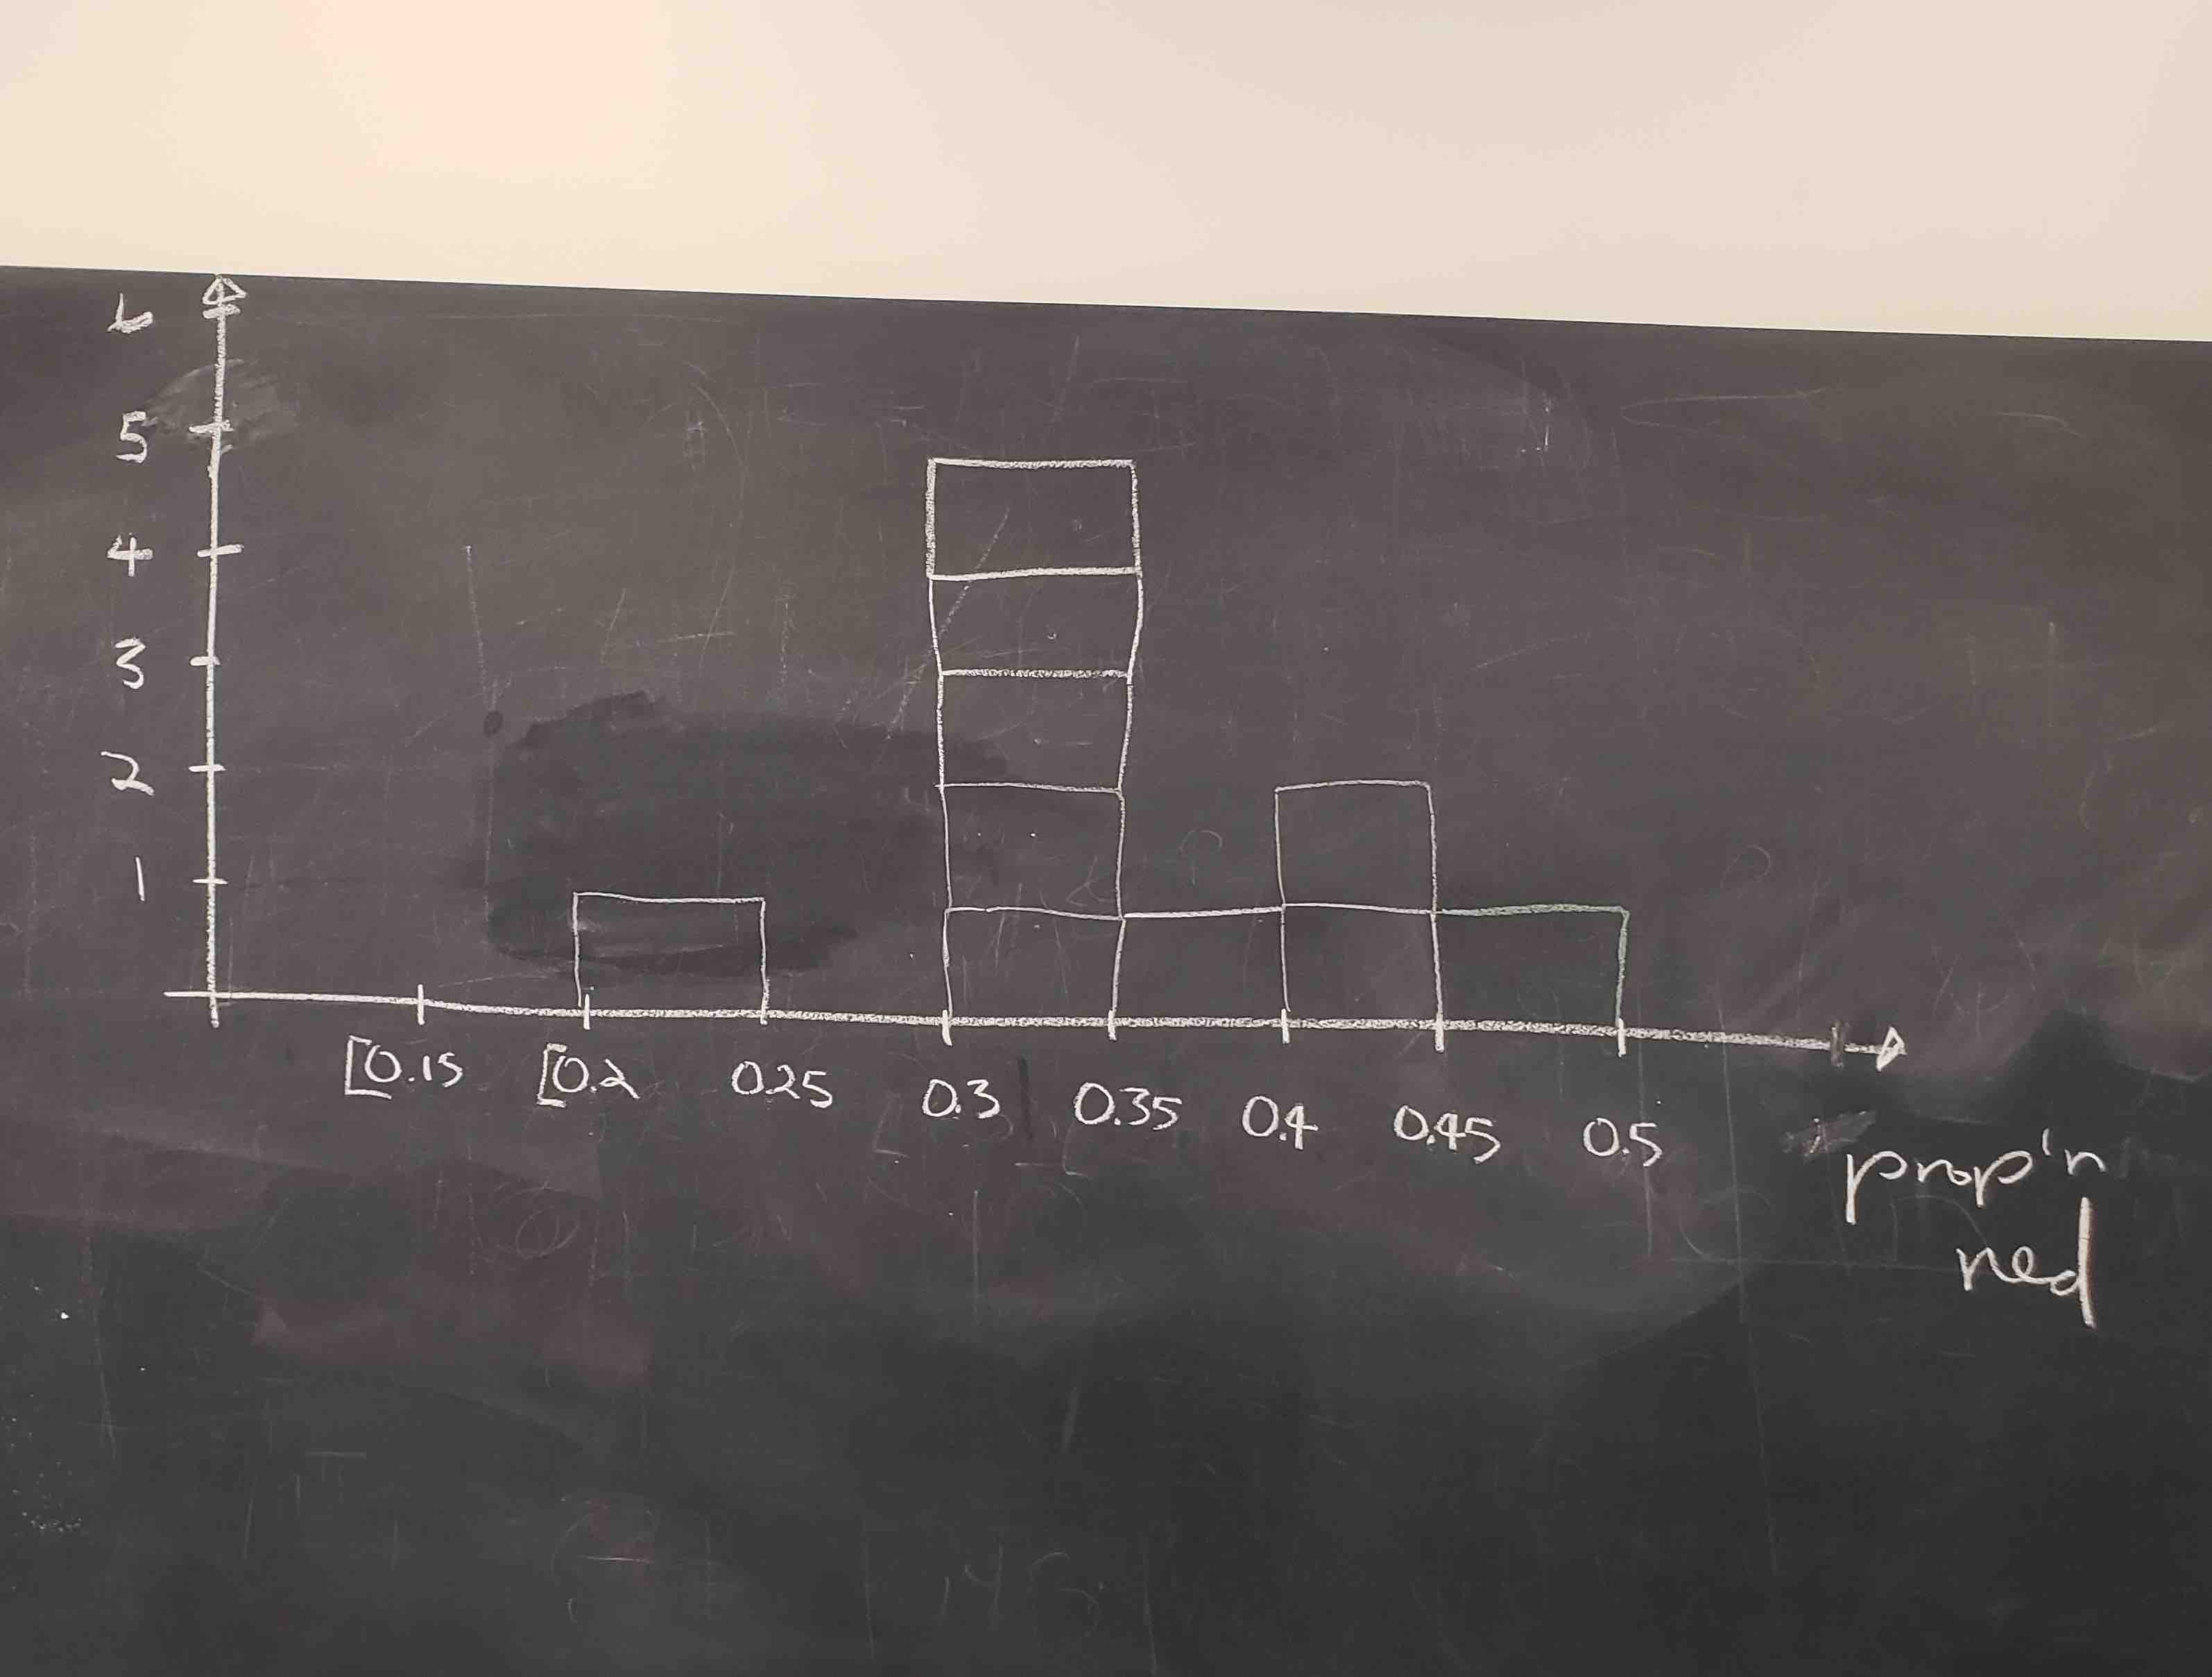 6
5
4
3
2
1
[0.15 [0.2 0.25 0.3 0.35 0.4 0.45 0.5
prop'n
red